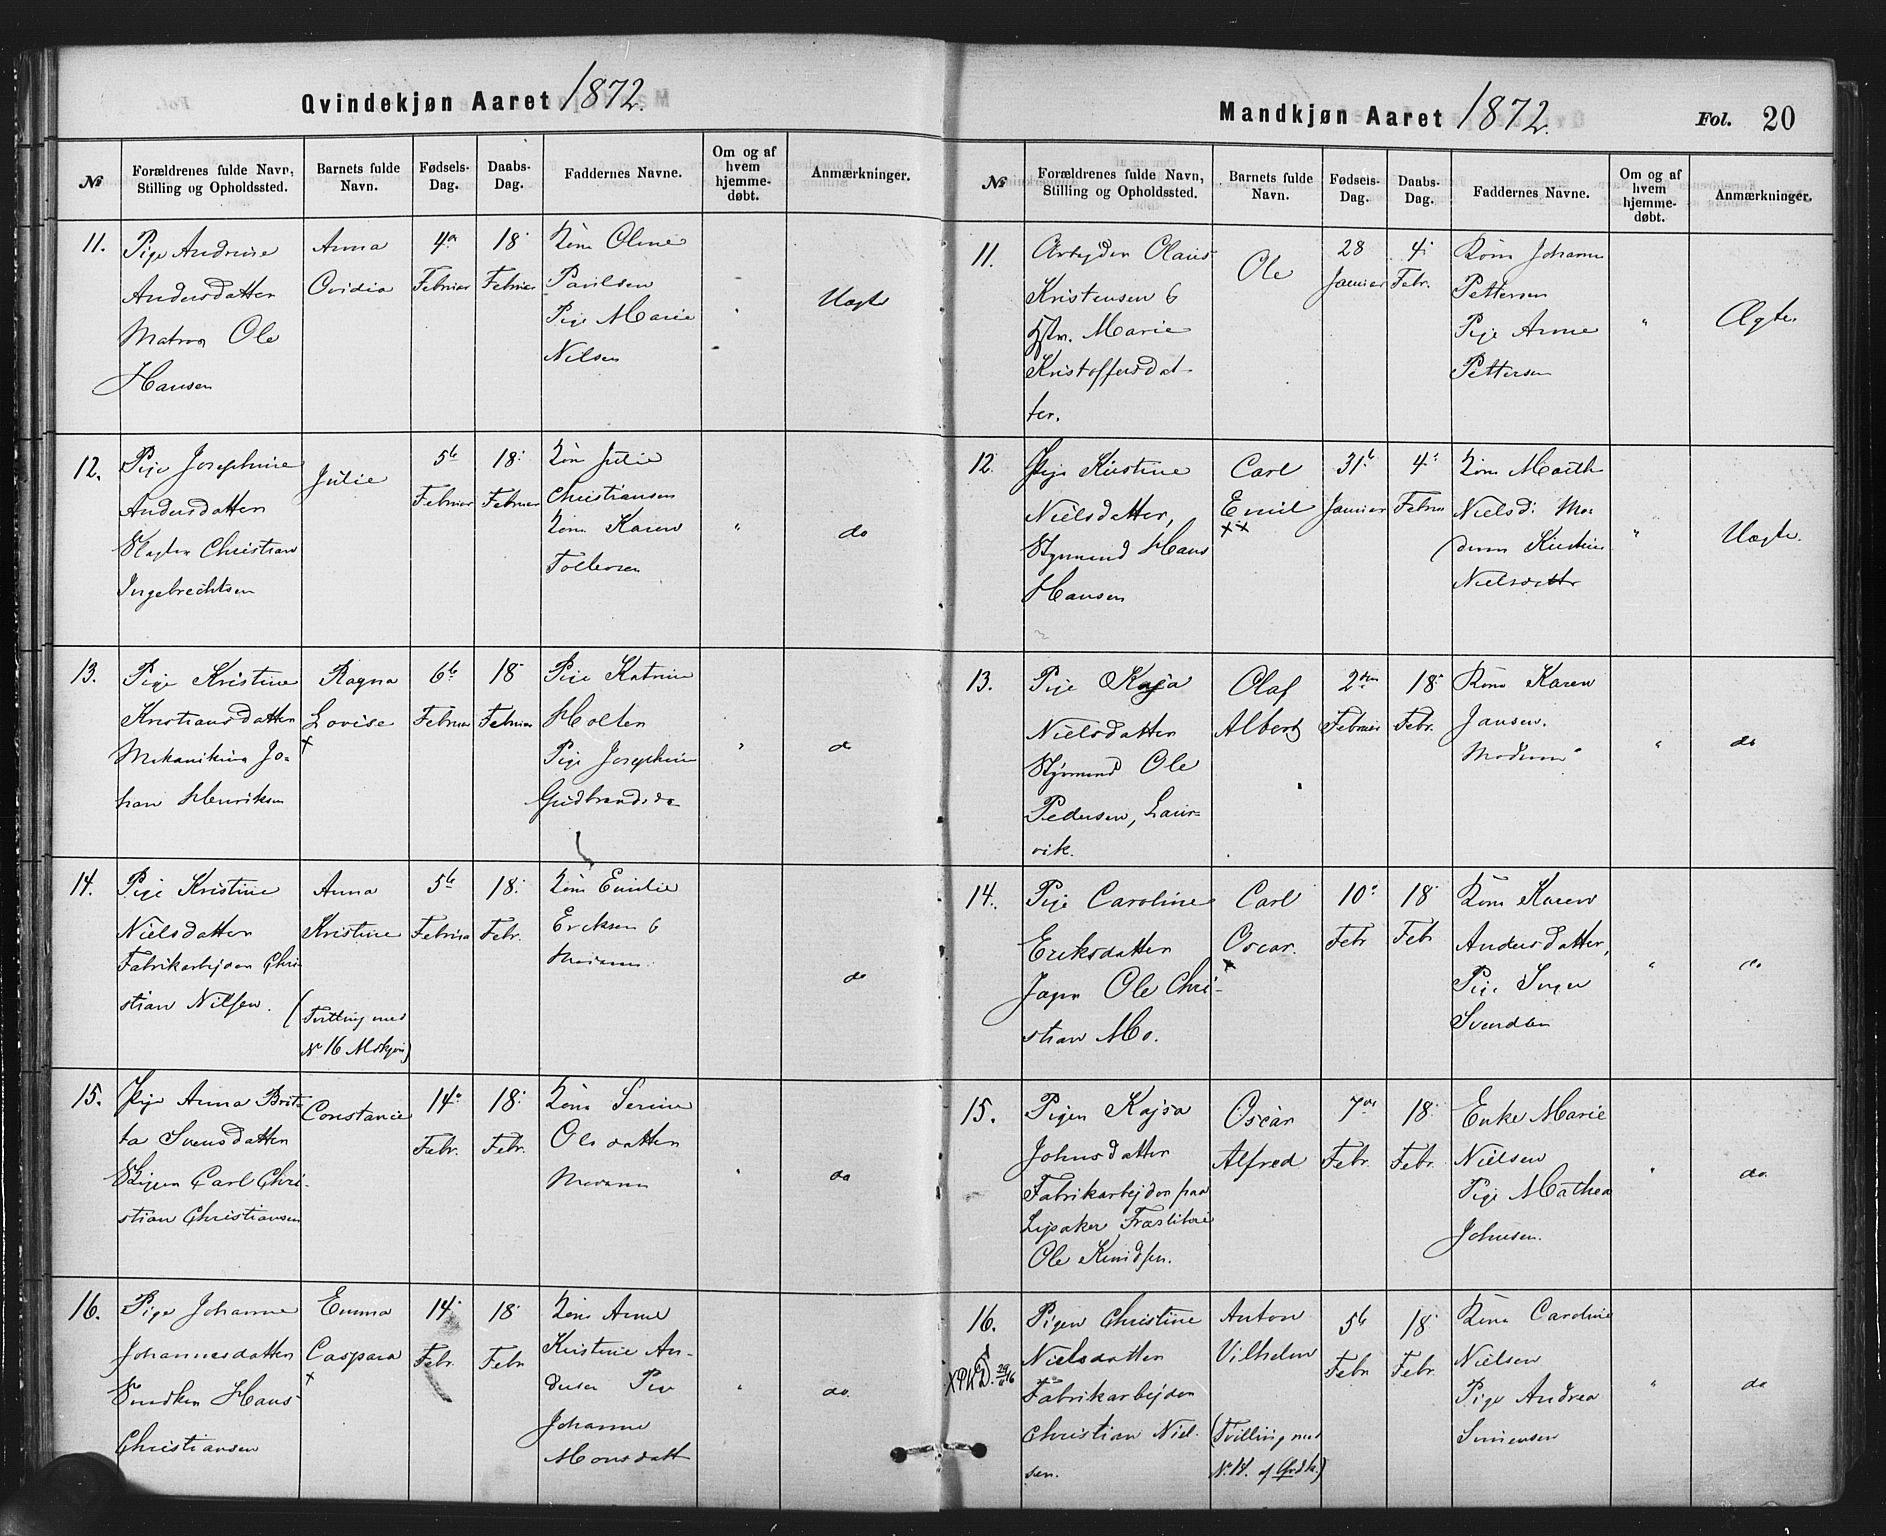 Qvindekjøn Aaret 1872.
№
Forældrenes fulde Navn,
Stilling og Opholdssted.
Barnets fulde
Navn.
Fødsels-
Dag.
Daabs-
Dag.
Faddernes Navne.
Om og af
hvem
hjemme-
døbt.
Anmærkninger.
11.
Pige Andrine
Andersdatter
Matros Ole
Hansen
Anna
Ovidia
4de
Februar
18
Februar
Kone Oline
Paulsen
Pige Marie
Nilsen
"
Uægte
12.
Pige Josephine
Andersdatter
Slagter Christian
Ingebrechtsen
Julie
5te
Februar
18
Februar
Kone Julie
Christiansen
Kone Karen
Tollevsen
"
do
13.
Pige Kristine
Kristiansdatter
Mekanikus Jo-
han Henriksen
Ragna
Lovise
x
6te
Februar
18
Februar
Pige Katrine
Holter
Pige Josephine
Gudbrandsda
"
do
14.
Pige Kristine
Nielsdatter
Fabrikarbejder Chri
stian Nilsen.
Anna
Kristine
(Tvilling med
No 16 Mskjøn)
5te
Februar
18.
Febr.
Kone Emilie
Eriksen &
Moderen.
do
15.
Pige Anna Brit-
ta Svensdatter
Carl Chri-
stian Christiansen
Constance
14.
Febr.
18
Febr.
Kone Serine
Olsdatter
Moderen
"
do
16.
Pige Johanne
Johannesdatter
Snedker Hans
Christiansen
Emma
Caspara
x
14.
Febr.
18
Febr
Kone Anne
Kristine An-
dersen Pige
Johanne
Monsdatt
"
do.
Mandkjøn Aaret 1872.
Fol. 20
№
Forældrenes fulde Navn,
Stilling og Opholdssted.
Barnets fulde
Navn.
Fødsels-
Dag.
Daabs-
Dag.
Faddernes Navne.
Om og af
hvem
hjemme-
døbt.
Anmærkninger.
11.
Arbejder Olaus
Kristensen &
Hstr. Marie
Kristoffersdat-
ter.
Ole
28
Januar
4
Febr.
Kone Johanne
Pettersen
Pige Anne
Pettersen
"
Ægte
12.
Pige Kirstine
Nielsdatter,
Styrmand Hans
Hansen
Carl
Emil
xx
31te
Januar
4
Februar
Kone Marth
Nielsd: Mo-
deren Kirstine
Nielsdattr
"
Uægte.
13.
Pige Kaja
Nielsdatter
Styrmand Ole
Pedersen, Laur-
vik.
Olaf
Albert
2den
Februar
18
Febr.
Kone Karen
Jansen.
Moderen
"
do
14.
Pige Caroline
Eriksdatter
Ole Chri-
stian Mo.
Carl
Oscar.
x
10
Febr
18
Febr
Kone Karen
Andersdatter,
Pige Inger
Svendsen
"
do
15.
Pigen Kajsa
Johnsdatter
Fabrikarbejder paa
Lysaker Træsliberi
Ole Knudsen.
Oscar
Alfred
7de
Febr.
18
Febr.
Enke Marie
Nielsen
Pige Mathea
Johnsen.
"
do.
16.
Pigen Christine
Nielsdatter
Fabrikarbejder
Christian Niel-
sen.
Anton
Vilhelm
(Tvilling med
No 14. af Qvdk.)
5te
Febr
18
Febr.
Kone Caroline
Nielsen
Pige Andrea
Simensen
"
do